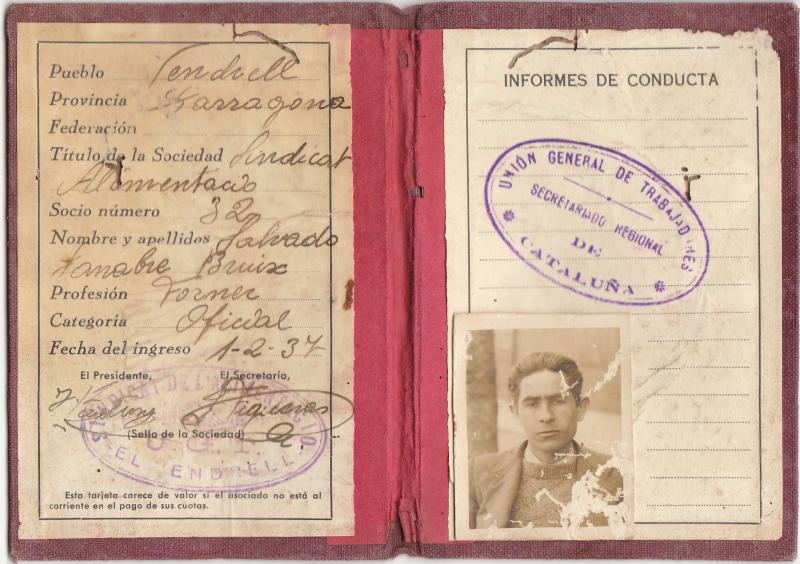 Pueblo Vendrell
Provincia Tarragona
Federación
Título de la Sociedad Sindicat
Alimentació
Socio número 32
Nombre y apellidos Salvado
Fanabre Bruix
Profesión Forner
Categoría Oficial
Fecha del ingreso 1-2-37
El Presidente, El Secretario,
Figueras
(Sello de la Sociedad)
SINDICAT DE L'ALIMENTACIO
U.G.T.
EL VENDRELL
Esta tarjeta carece de valor si el asociado no está al
corriente en el pago de sus cuotas.
INFORMES DE CONDUCTA
UNIÓN GENERAL DE TRABAJADORES
SECRETARIADO REGIONAL
DE
CATALUÑA